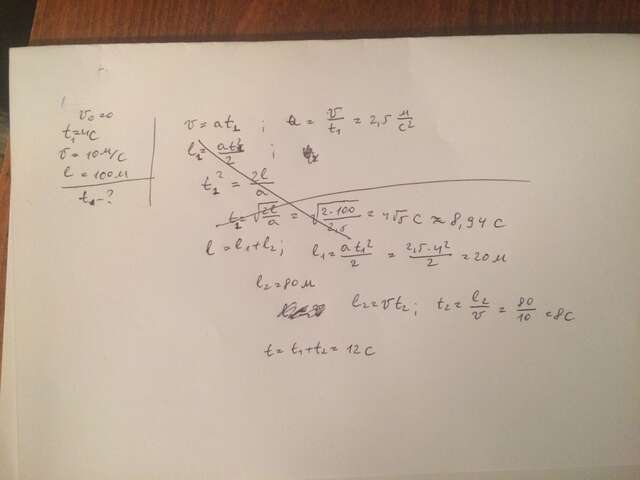 v₀=0
t₁=4с
v=10м/с
l=100м
t-?
v=at₁; a=v/t₁=2,5 м/с²
l₁=at²/2;
t₁²=2l/a
t₁=√(2l/a)=√(2·100/2,5)=4√5 с ≈ 8,94 с
l=l₁+l₂; l₁=at₁²/2=2,5·4²/2=20м
l₂=80м
l₂=vt₂; t₂=l₂/v=80/10=8с
t=t₁+t₂=12с